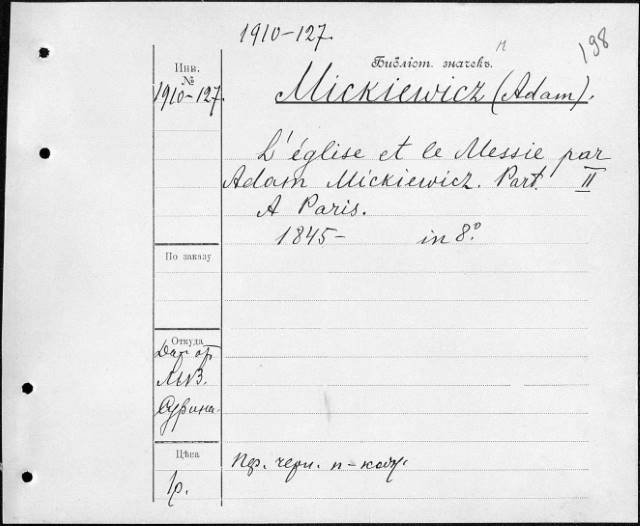 1910-127.
198
Инв.
№
1910-127.
Библіот. значекъ.
Mickiewicz (Adam).
L'église et le Messie par
Adam Mickiewicz. Part. II
A Paris.
1845- in 8º
По заказу
Откуда
Дар от
Сурина
Цѣна
1р.
пер. черн. п-кож.